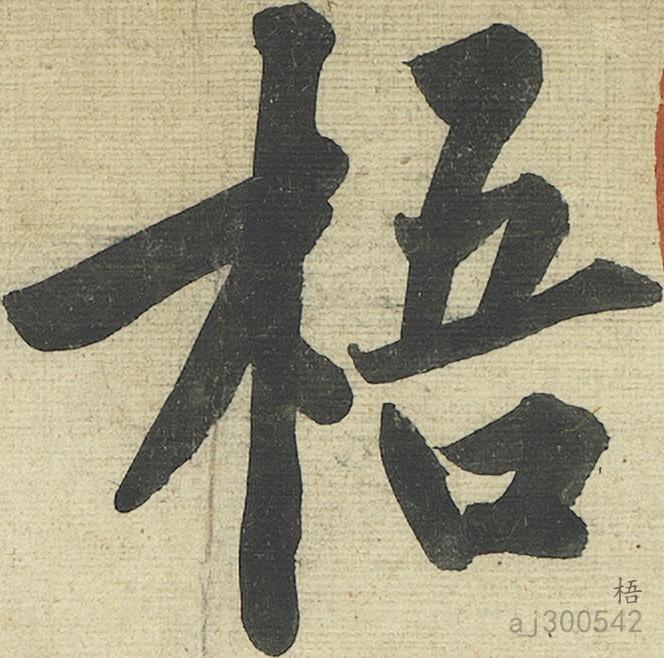 梧
梧
aj300542